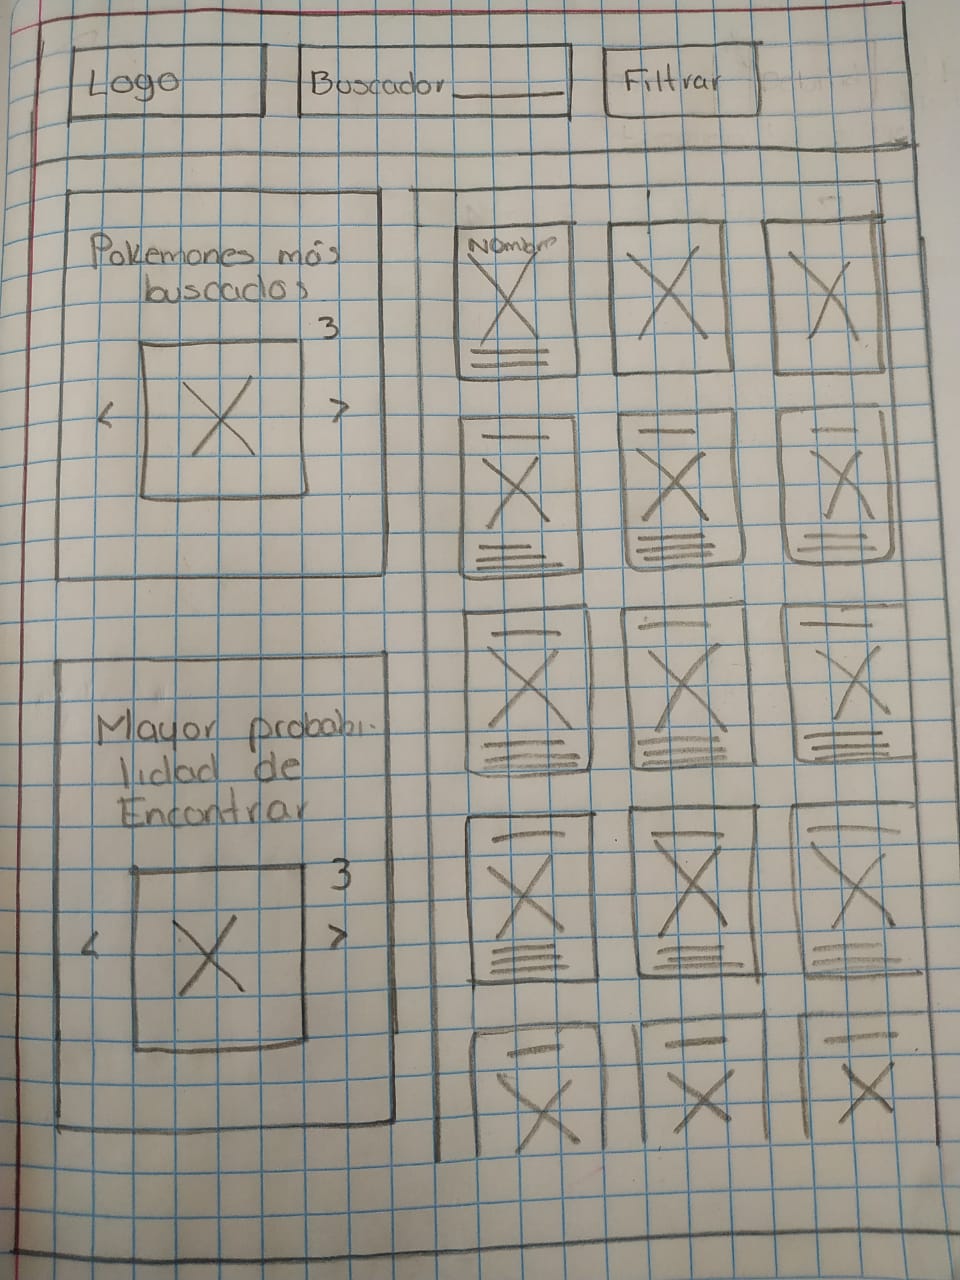 Logo
Buscador
Filtrar
Pokemones más
buscados
3
<
>
Nombre
Mayor probabi-
lidad de
Encontrar
3
<
>